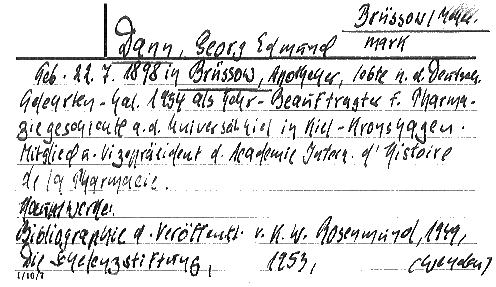 Brüssow/
Dann, Georg Edmund mark
Geb. 22.7.1898 in Brüssow, Apotheker, lebte n. d. Deutsch.
Gelehrten-Kal. 1954 als Lehr-Beauftragter f. Pharma-
ziegeschichte a.d. Univers. Kiel in Kiel-Kronshagen.
Mitglied u. Vizepräsident d. Academie Intern. d'Histoire
de la Pharmacie.
Hauptwerke:
Bibliographie d. Veröffentl. v. H. W. Rosenmund, 1949,
Die Schelenzstiftung, 1953,